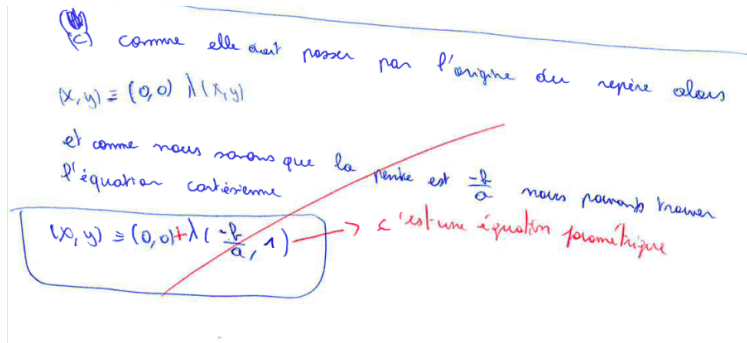 (c) comme elle doit passer par l'origine du repère alors
(x, y) ≡ (0,0) λ(x,y)
et comme nous savons que la pente est -b/a nous pouvons trouver
l'équation cartésienne
(x, y) ≡ (0,0)+λ(-b/a, 1) → c'est une équation paramétrique